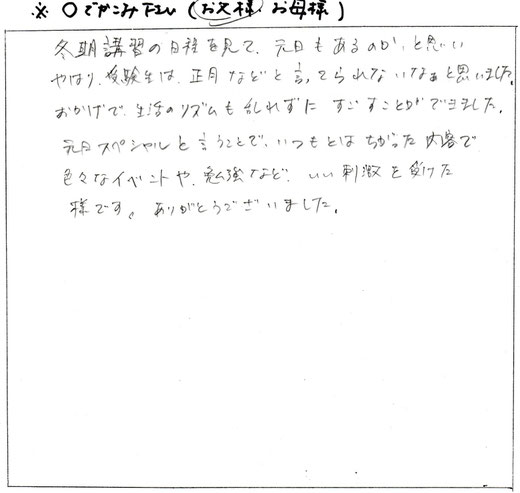 ※ ○でかこみ下さい (お父様 お母様)
冬期講習の日程を見て、元日もあるのか、と思い
やはり、受験生は、正月などと言ってられないなぁと思いました。
おかげで、生活のリズムも乱れずに すごすことができました。
元日スペシャルと言うことで、いつもとは ちがった 内容で
色々なイベントや、勉強など、いい刺激を受けた
様です。ありがとうございました。